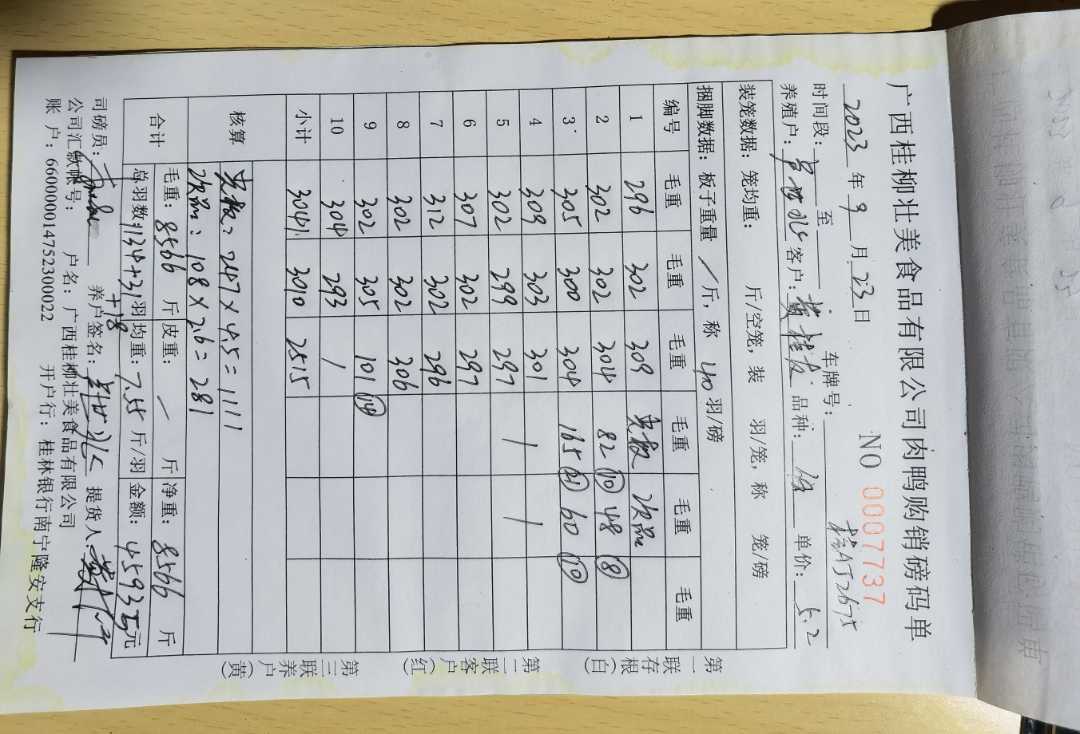 广西桂柳壮美食品有限公司肉鸭购销磅码单
NO 0007737
2023 年 9 月 23 日
时间段： 至 车牌号： 桂AJ2675
养殖户： 客户：黄桂友 品种： 单价：5.2
装笼数据：笼均重： 斤/空笼，装 羽/笼，称 笼/磅
捆脚数据：板子重量 / 斤，称 40 羽/磅
编号 毛重 毛重 毛重 毛重 毛重 毛重
1 296 302 309 克板 次品
2 302 302 304 82 ⑩ 48 ⑧
3 305 300 304 165 ㉑ 60 ⑩
4 309 303 301
5 302 299 297 / /
6 307 302 297
7 312 302 296
8 302 302 306
9 302 305 101 ⑭
10 304 293 /
小计 3041 3010 2515
核算 克板：247×4.5=1111
次品：108×2.6=281
合计 毛重：8566 斤 皮重： / 斤 净重：8566 斤
总羽数：1134+31+18 羽 均重：7.55 斤/羽 金额：45935元
司磅员： 养户签名： 提货人：
公司汇款帐号： 户名：广西桂柳壮美食品有限公司
账 户：660000014752300022 开户行：桂林银行南宁隆安支行
第一联存根（白） 第二联客户（红） 第三联养户（黄）